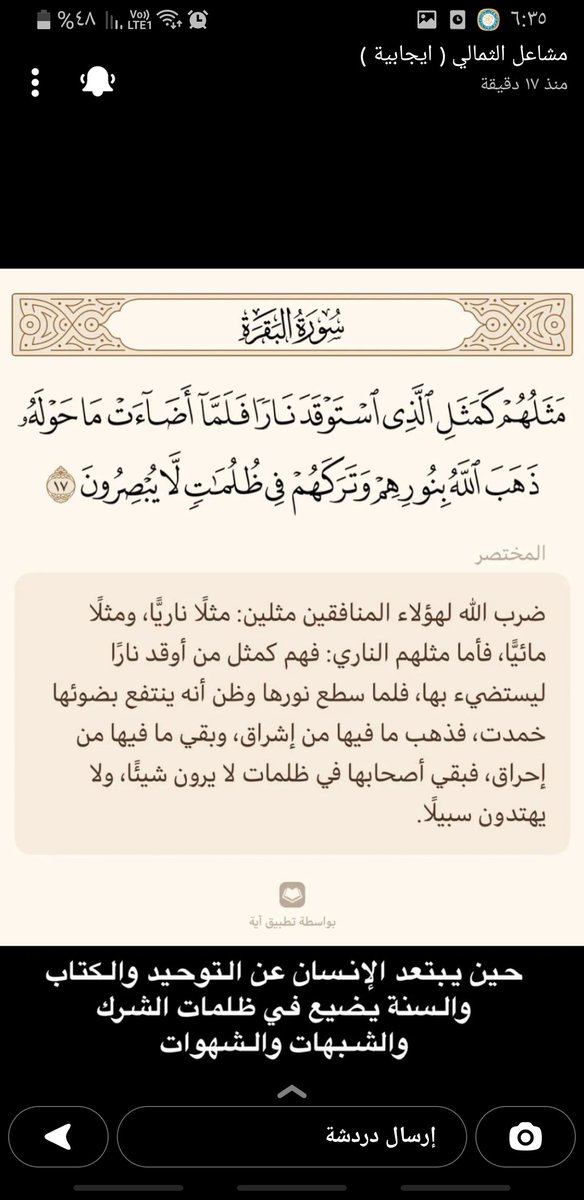 ٦:٣٥
%٤٨ Vo)) LTE1
مشاعل الثمالي ( ايجابية )
منذ ١٧ دقيقة
سُورَةُ البَقَرَةِ
مَثَلُهُمۡ كَمَثَلِ ٱلَّذِي ٱسۡتَوۡقَدَ نَارٗا فَلَمَّآ أَضَآءَتۡ مَا حَوۡلَهُۥ
ذَهَبَ ٱللَّهُ بِنُورِهِمۡ وَتَرَكَهُمۡ فِي ظُلُمَٰتٖ لَّا يُبۡصِرُونَ ١٧
المختصر
ضرب الله لهؤلاء المنافقين مثلين: مثلًا ناريًّا، ومثلًا
مائيًّا، فأما مثلهم الناري: فهم كمثل من أوقد نارًا
ليستضيء بها، فلما سطع نورها وظن أنه ينتفع بضوئها
خمدت، فذهب ما فيها من إشراق، وبقي ما فيها من
إحراق، فبقي أصحابها في ظلمات لا يرون شيئًا، ولا
يهتدون سبيلًا.
بواسطة تطبيق آية
حين يبتعد الإنسان عن التوحيد والكتاب
والسنة يضيع في ظلمات الشرك
والشبهات والشهوات
إرسال دردشة